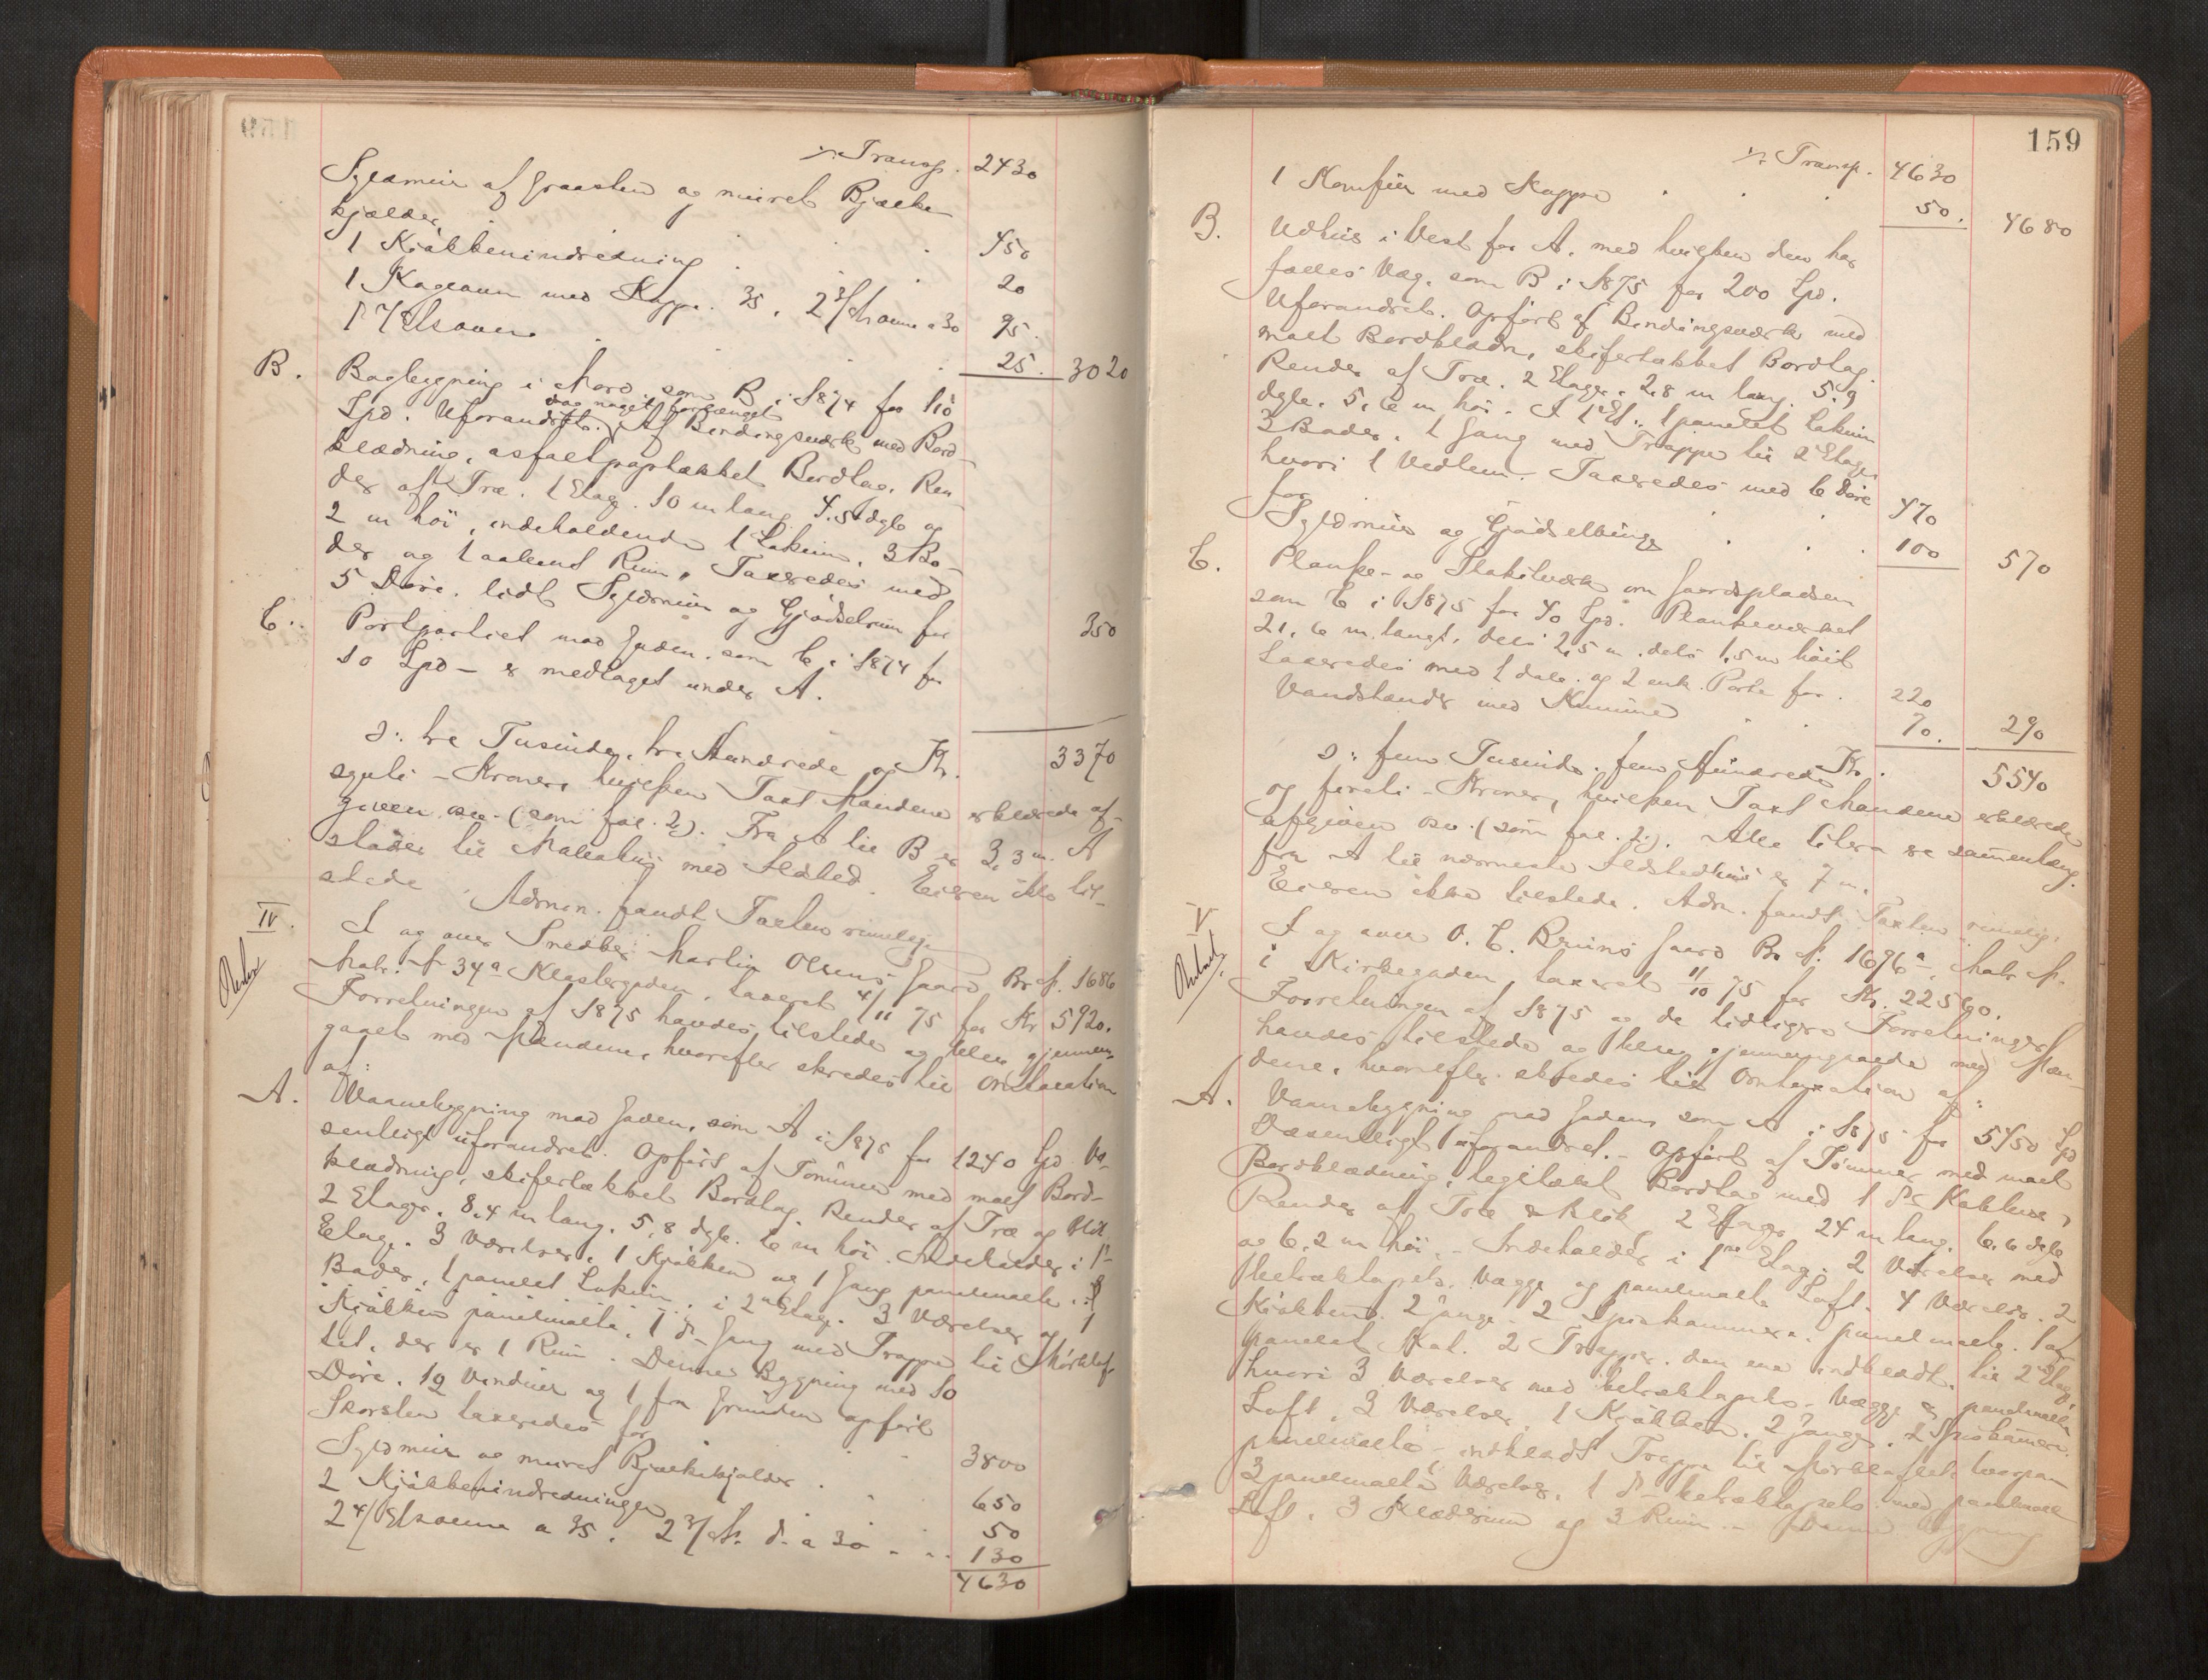 ./. Transp. 2430
Sydmur af Graasten og muret Bjælke-
kjælder 450
1 Kjøkkenindredning 20
1 Kageovn med Kappe 35, 2 3/Et ovne a 30 95.
1 4/Etsovn 25. 3020
B. Bagbygning i Nord, som B i 1874 for 110
Spd. Uforandret, dog noget forlænget. Af Bindingsværk med Bord-
klædning, asfaltpaptækket Bordtag, Ren-
der af Træ. 1 Etage. 10 m lang 4.5 dyb og
2 m høi, indeholdende 1 Lokum, 3 Bo-
der og 1 aabent Rum, Taxeredes med
5 Døre, lidt Syldmur og Gjødselrum for 350
C. Portpartiet mod Gaden, som C i 1874 for
10 Spd - er medtaget under A.
Kr. 3370
ɔ: tre Tusinde, tre Hundrede og
sytti - Kroner, hvilken Taxt Mændene erklærede af-
given osv. (som fol. 2.). Fra A til B er 3,3 m. A
støder til Naboshus med Ildsted. Eieren ikke til-
stede. Admin. fandt Taxten rimelig.
IV. I og over Snedker Martin Olsens Gaard Br. N. 1686
Matr. N 34a Klostergaden, taxeret 4/11 75 for Kr 5920.
Forretningen af 1875 havdes tilstede og blev gjennem-
gaaet med Mændene, hvorefter skredes til Omtaxation
af:
A. Vaanebygning mod Gaden, som A i 1875 for 1240 Spd. Væ-
sentligt uforandret. Opført af Tømmer med malt Bord-
klædning, skifertækket Bordtag, Render af Træ og Blik
2 Etager. 8,4 m lang, 5,8 dyb. 6 m høi. Indeholder i 1ste
Etage. 3 Værelser, 1 Kjøkken og 1 Gang panelmalte,
Boder, 1 panelet Lokum, i 2den Etage. 3 Værelser og 1
Kjøkken panelmalte, 1 do Gang med Trappe til Mørkelof-
tet, der er 1 Rum. Denne Bygning med 10
Døre, 12 Vinduer og 1 fra Grunden opført
Skorsten taxeredes for 3800
Syldmur og muret Bjælkekjælder 650
2 Kjøkkenindredninger 50
2 4/Etsovne a 35, 2 3/Ets do a 30 130
4630
159
./. Transp. 4630
1 Komfur med Kappe 50. 4680
B. Udhus i Vest for A, med hvilken den har
fælles Væg, som B i 1875 for 200 Spd.
Uforandret. Opført af Bindingsværk med
malt Bordklædn, skifertækket Bordtag.
Render af Træ. 2 Etager, 2,8 m lang, 5,9
dyb, 5,6 m høi. I 1ste Et.: 1 panelet Lokum
3 Boder, 1 Gang med Trappe til 2den Etage
hvori 1 Vedlem. Taxeredes med 6 Døre
for 470
Syldmur og Gjødselbinge 100 570
C. Planke- og Stakitværk om Gaardspladsen
som C i 1875 for 40 Spd. Plankeværket
21,6 m langt, dels 2,5 m, dels 1,5 m høit
taxeredes med 1 dobb. og 2 enk. Porte for 220
Vandstander med Kumme 70. 290
Kr. 5540
ɔ: fem Tusinde, fem Hundrede
og fireti - Kroner, hvilken Taxt Mændene erklærede
afgiven osv. (som fol. 2.). Alle litera er sammenbyg.
fra A til nærmeste Ildstedhus er 7 m.
Eieren ikke tilstede. Adm. fandt Taxten rimelig.
V I og over O. C. Bruns Gaard Br. N. 1676a, Matr. N.
i Kirkegaden, taxeret 11/10 75 for Kr. 22560.
Forretningen af 1875 og de tidligere Forretninger
havdes tilstede og blev gjennemgaaede med Mæn-
dene, hvorefter skredes til Omtaxation af:
A. Vaanebygning mod Gaden, som A i 1875 for 5450 Spd
Væsentligt uforandret. - Opført af Tømmer med malt
Bordklædning, tegltækt Bordtag med 1 do Kobbhus,
Render af Træ & Blik, 2 Etager 24 m lang, 6,6 dyb
og 6,2 m høi. - Indeholder i 1ste Etage. 2 Værelser med
betræktapets. Vægge og panelmalte Loft. 4 Værelser. 2
Kjøkkener. 2 Gange. 2 Spiskammere, panelmalte. 1
panelet Kot. 2 Trapper, den ene indklædt, til 2den Etage,
hvori 3 Værelser med betræktapets. Vægge & panelmalte
Loft. 3 Værelser, 1 Kjøkken, 2 Gange, 2 Spiskammere
panelmalte, - indklædt Trappe til Mørkeloftet hvorpaa
3 panelmalte Værelser, 1 do betræktapets. med panelmalt
Loft. 3 Klæderum og 3 Rum. - Denne Bygning